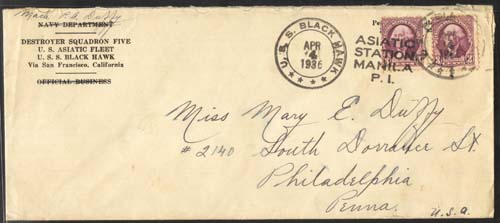 Mach. R.A. Duffy
NAVY DEPARTMENT
DESTROYER SQUADRON FIVE
U. S. ASIATIC FLEET
U. S. S. BLACK HAWK
Via San Francisco, California
OFFICIAL BUSINESS
U. S. S. BLACK HAWK
APR
4
1936
ASIATIC
STATION,
MANILA
P. I.
Miss Mary E. Duffy
#2140 South Dorrance St
Philadelphia
Penna.
U.S.A.